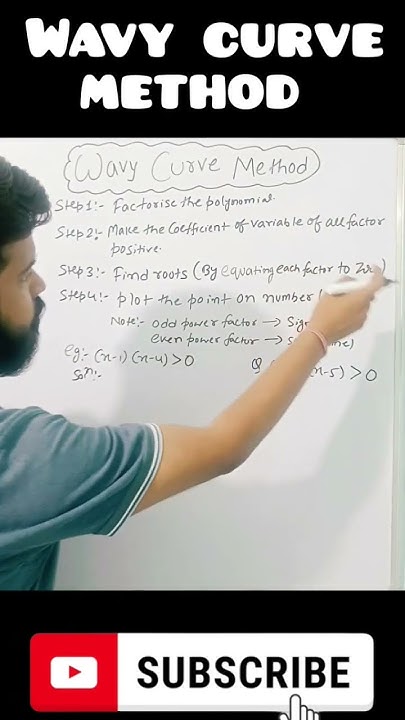 WAVY CURVE
METHOD
Wavy Curve Method
Step 1:- Factorise the polynomial.
Step 2:- Make the Coefficient of variable of all factor
positive.
Step 3:- Find roots (By equating each factor to Zero)
Step 4:- plot the point on number
Note:- odd power factor → Sign
even power factor → S
eg:- (x-1) (x-4) > 0
Solⁿ:-
Q (x-5) > 0
SUBSCRIBE